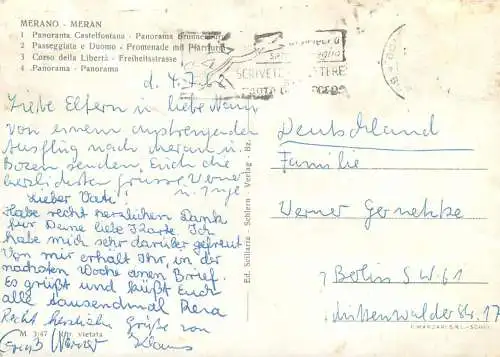 MERANO - MERAN
1 Panorama Castelfontana - Panorama Brunnenburg
2 Passeggiata e Duomo - Promenade mit Pfarrturm
3 Corso della Libertà - Freiheitsstrasse
4 Panorama - Panorama
d. 4.7.
SCRIVETE
Liebe Eltern u. liebe
Von einem anstrengenden
Ausflug nach Meran u.
Bozen senden Euch die
herzlichsten Grüsse Werner
u. Inge
Lieber Vati!
Habe recht herzlichen Dank
für Deine liebe Karte. Ich
habe mich sehr darüber gefreut.
Von mir erhält Ihr in der
nächsten Woche einen Brief.
Es grüßt und küßt Euch
alle tausendmal
Recht herzliche Grüße von
Werner Klaus
M 3/47 Rip. vietata
Ed. Scilliara - Schlern - Verlag - Bz.
Deutschland
Familie
Werner Gernetzke
1 Berlin S.W. 61
Mittenwalder Str. 17